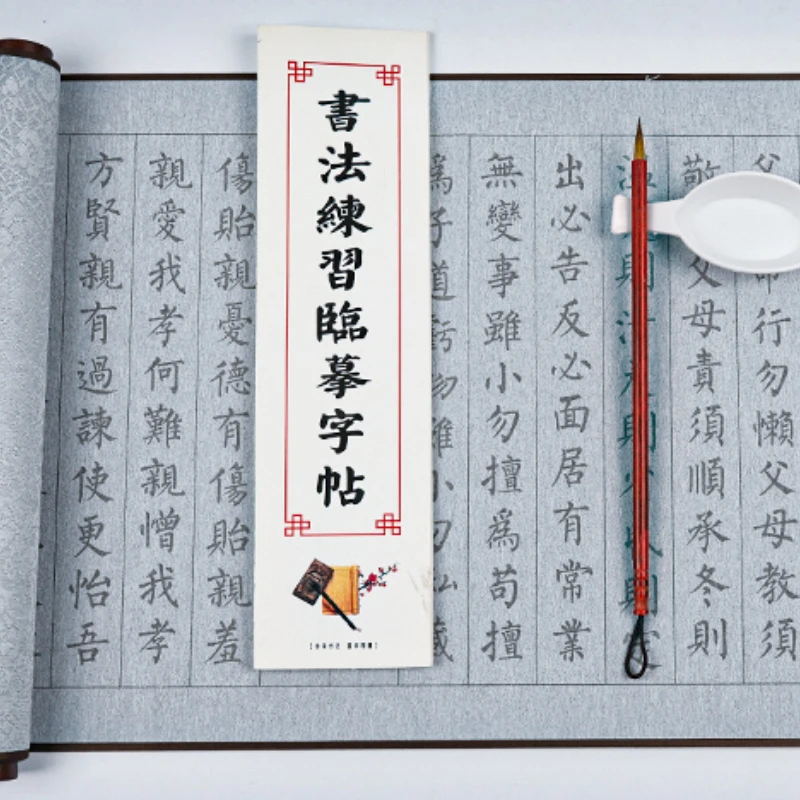 書法練習臨摹字帖
行勿懶父母教須
敬父母責須順承冬則
則則則
出必告反必面居有常業
無變事雖小勿擅爲苟擅
爲子道虧物雖小勿私藏
傷貽親憂德有傷貽親羞
親愛我孝何難親憎我孝
方賢親有過諫使更怡吾